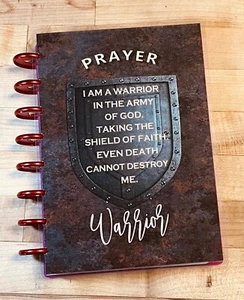 PRAYER
I AM A WARRIOR
IN THE ARMY
OF GOD,
TAKING THE
SHIELD OF FAITH,
EVEN DEATH
CANNOT DESTROY
ME.
Warrior